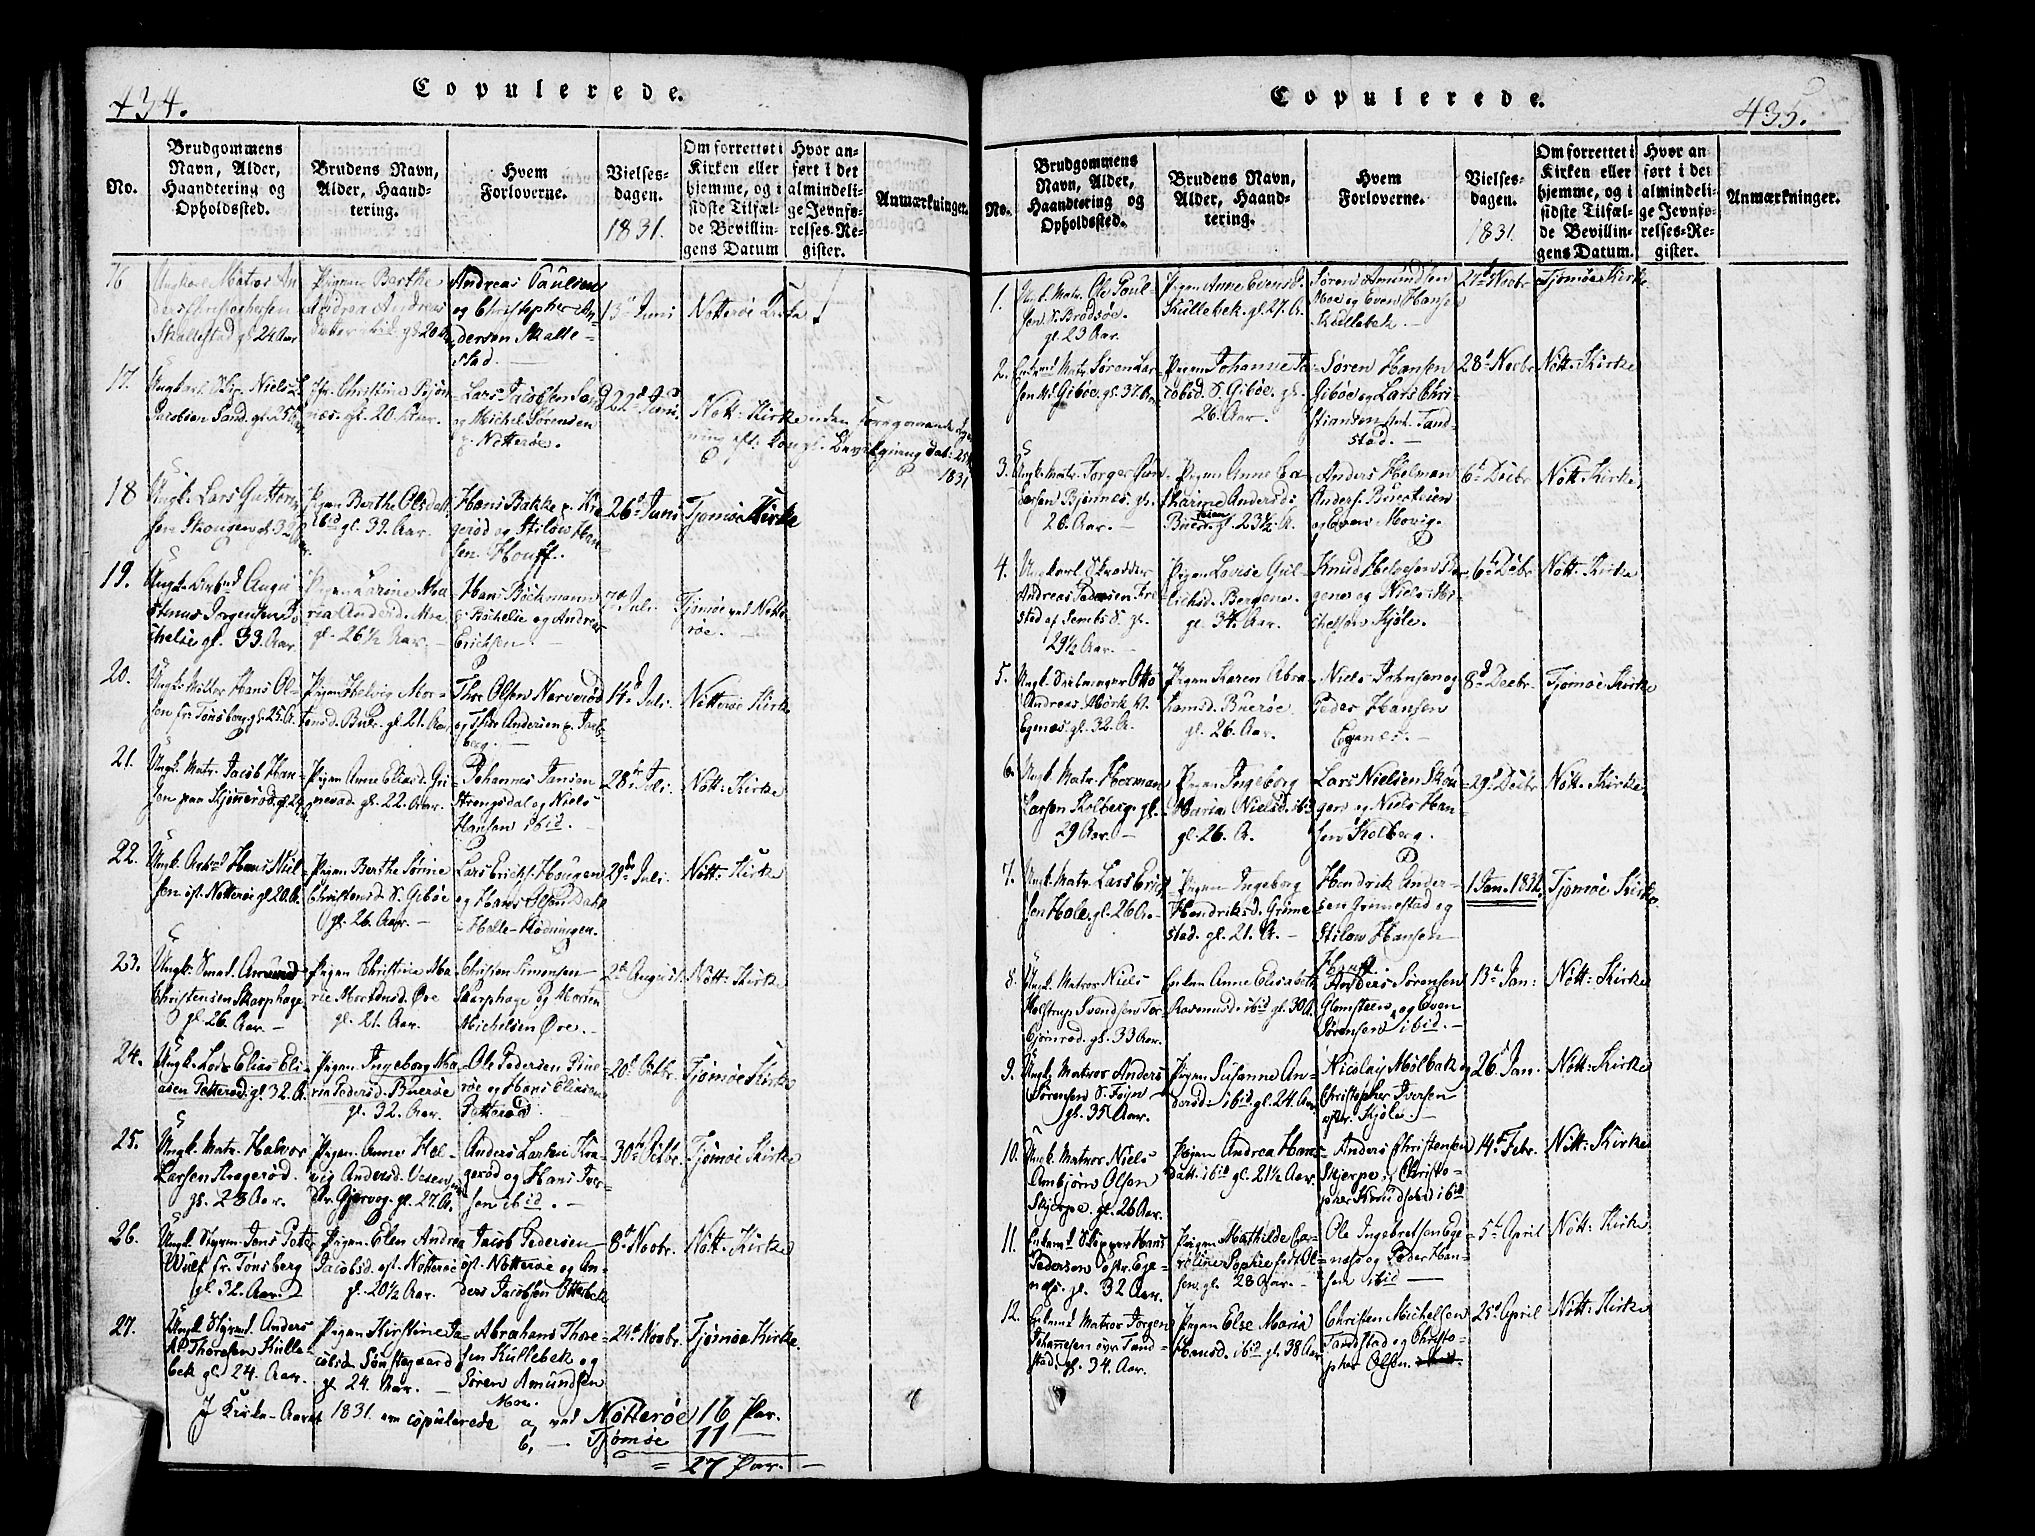 434.
Copulerede.
No.
Brudgommens Navn, Alder, Haandtering og Opholdssted.
Brudens Navn, Alder, Haandtering.
Hvem Forloverne.
Vielsesdagen. 1831.
Om forrettet i Kirken eller hjemme, og i sidste Tilfælde Bevillingens Datum
Hvor anført i det almindelige Jevnførelses-Register.
Anmærkninger.
16
Ungkarl Matros An-
Skallestad gl. 24 Aar
Pigen Berthe
Andrea Andreas
gl. 20
Andreas Paulsen
og Christopher An-
dersen Skalle-
stad.
13de Juni
Notterøe Kirke
17.
Ungkarl Niels
Jacobsen Sand. gl. 25
Jfr. Christine Bjøn-
nes. gl. 20 Aar.
Lars Jacobsen Sand
og Michel Sørensen
Nøtterøe.
22de Juni
Nøtt: Kirke uden Foregaaende
1831
18
Ungk. Lars Guttorm-
sen Skougen gl. 32
Pigen Berthe Olsdatt.
ibid gl. 39. Aar.
Hans Bakke
gerød og Stilow Han-
sen Houff.
26de Juni
Tjømøe Kirke
19.
Ungk. Augu-
stinus Jørgensen
gl. 33. Aar
Pigen Karine Ma-
ria Andersd. Moe
gl. 26 1/2 Aar.
Hans Bøckmann
og Andreas
Ericksen.
7de Juli.
Tjømøe ved Nøtt-
røe.
20.
Ungk. Møller Hans Ol-
sen fr. Tønsberg gl. 25 A.
Pigen Helvig Mor-
tensd. Buer. gl. 21. Aar
Thor Olsen Narverød
og Thor Andersen
berg.
14de Juli.
Nøtterøe Kirke
21.
Ungk. Matr. Jacob Han-
sen paa Skjønnerød gl. 29
Pigen Anne Eliasd. Gri-
mestad. gl. 22. Aar.
Johannes Jansen
Strengsdal og Niels
Hansen ibid.
28de Juli.
Nøtt: Kirke
22.
Ungk. Arbmd Hans Niel-
sen øst. Nøtterøe gl. 20. A.
Pigen Berthe Sørine
Christensd. S. Gibøe
gl. 26. Aar.
Lars Ericks. Haugen
og Hans Olsen Dahl
29de Juli.
Nøtt: Kirke
23.
Ungk. Smed. Amund
Christensen Skarphage
gl. 26. Aar.
Pigen Christine Ma-
rie Mortensd. Øre
gl. 21. Aar.
Christen Simensen
Skarphage og Morten
Michelsen Øre.
2de August.
Nøtt: Kirke
24.
Ungk. Lods Elias Eli-
asen Petterød. gl. 32. A.
Pigen Ingeborg Ma-
ria Pedersd. Buerøe
gl. 32. Aar.
Ole Pedersen Bue-
røe og Hans Eliasen
Petterød
20de Octbr.
Tjømøe Kirke
25.
Ungk. Matr. Halvor
Larsen Kragerød.
gl. 28 Aar.
Pigen Anne Hel-
vig Andersd.
gl. 27. A.
Anders Larsen Kra-
gerød og Hans Iver-
sen ibid.
30te Octbr.
Tjømøe Kirke
26.
Ungk. Styrm. Jens Peter
Wulf fr. Tønsberg
gl. 32. Aar.
Pigen Elen Andrea
Jacobsd. øst. Nøtterøe
gl. 20 1/2 Aar.
Jacob Pedersen
øst. Nøtterøe og An-
ders Jacobsen Otterbek
8de Novbr.
Nøtt. Kirke
27.
Ungk. Styrmd. Anders
M. Thoresen Kulle-
bek gl. 24. Aar.
Pigen Kirstine Ja-
cobsd. Sønstegaard
gl. 24. Aar.
Abraham Thore-
sen Kullebek og
Søren Amundsen
Moe.
24de Novbr.
Tjømøe Kirke
I Kirke-Aaret 1831 ere copulerede a, ved Nøtterøe 16 Par.
b, — Tjømøe 11 —
= 27 Par. —
435.
Copulerede.
No.
Brudgommens Navn, Alder, Haandtering og Opholdssted.
Brudens Navn, Alder, Haandtering.
Hvem Forloverne.
Vielsesdagen. 1831.
Om forrettet i Kirken eller hjemme, og i sidste Tilfælde Bevillingens Datum.
Hvor anført i det almindelige Jevnførelses-Register.
Anmærkninger.
1.
Ungk. Matr. Ole Poul-
sen S. Brødsøe.
gl. 23 Aar.
Pigen Anne Evensd.
Kullebek. gl. 27. A.
Søren Amundsen
Moe og Even Hansen
Kullebek.
27de Novbr
Tjømøe Kirke
2.
Enkemd Matr. Søren Lar-
sen N. Gibøe. gl. 37. Aar
Pigen Johanne Ja-
cobsd. S. Gibøe. gl.
26. Aar.
Søren Hansen
Gibøe og Lars Chri-
stiansen Tand-
stad.
28de Novbr
Nøtt: Kirke
3.
Ungk. Matr. Torger Gun-
Bjønnes. gl.
26. Aar.
Pigen Anne Ca-
tharine Andersd.
gl. 23 1/2 A.
Anders Helman
Anders. Buerstien
og Even Movig.
6te Decbr
Nøtt. Kirke
4.
Ungkarl Skrædder
Andreas Pedersen Fre-
stad af Sembs S. gl.
29 1/2 Aar.
Pigen Lovise Gul-
lichsd. Bergene.
gl. 34. Aar.
Knud Helgesen Ber-
gene og Niels Mi-
chelsen Kjøle.
6te Decbr
Nøtt. Kirke
5.
Ungk. Otto
Andreas Mørk N.
Egenæs. gl. 32. A.
Pigen Karen Abra-
hamsd. Buerøe
gl. 26. Aar.
Niels Johnsen og
Peder Hansen
Egenes.
8de Decbr.
Tjømøe Kirke
6.
Ungk. Matr. Herman
Larsen Kolberg. gl.
29 Aar.
Pigen Ingeborg
Maria Nielsd. ibid
gl. 26. A.
Lars Nielsen Skou-
gen og Niels Han-
sen Kolberg.
29de Decbr
Nøtt. Kirke
7.
Ungk. Matr. Lars Erick-
sen Hole. gl. 26 Aar
Pigen Ingeborg
Hendriksd. Grime-
stad. gl. 21. A.
Hendrik Ander-
sen Grimestad og
Stilow Hansen
Houff.
1 Jan. 1832.
Tjømøe Kirke.
8.
Ungk. Matros Niels
Holstrup Svendsen Tor-
gl. 33 Aar.
Enken Anne Elisabeth
Rasmusd. ibid gl. 30 A.
Anders Sørensen
Glomsteen og Even
Sørensen ibid.
13de Jan:
Nøtt: Kirke
9.
Ungk. Matros Anders
Sørensen S. Føyn
gl. 35 Aar.
Pigen Susanne An-
dersd. ibid gl. 24. Aar
Nicolay Mølbak og
Christopher Iversen
østr. Kjøle.
26de Jan.
Nøtt: Kirke
10.
Ungk. Matros Niels
Ambjørn Olsen
Skjerpe. gl. 26 Aar.
Pigen Andrea Hans-
datt. ibid gl. 21 1/2 Aar.
Anders Christensen
Skjerpe og Christo-
pher Knudsen ibid
14de Febr.
Nøtt: Kirke
11.
Enkemd Skipper Hans
Pedersen østr. Ege-
næs. gl. 32 Aar.
Pigen Mathilde Ca-
roline Sophie født Ol-
sen. gl. 28 Aar.
Ole Ingebretsen Ege-
næs og Peder Han-
sen ibid
5te April
Nøtt: Kirke
12.
Enkemd Matros Jørgen
Johannesen øvr. Tand-
stad. gl. 34. Aar.
Pigen Else Maria
Hansd. ibid gl. 38 Aar
Christen Michelsen
Tandstad og Christo-
pher Olsen.
25de April
Nøtt: Kirke